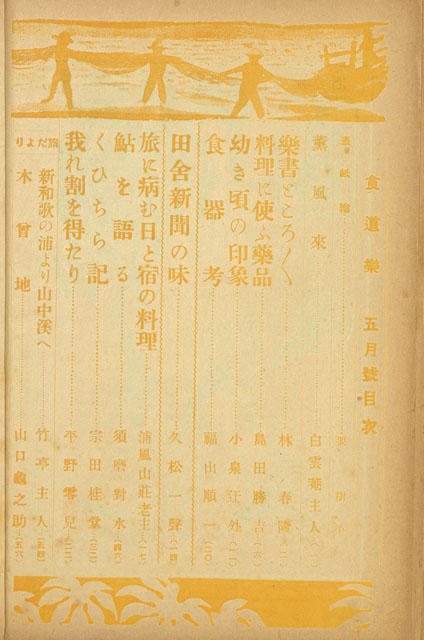 食道樂 五月號目次
表紙繪
薰風來 白雲莊主人(一)
樂書ところ〴〵 林春隆
料理に使ふ藥品 島田勝吉
幼き頃の印象 小泉迂外
食器考 福山順一
田舍新聞の味 久松一聲(一四)
旅に病む日と宿の料理 浦風山莊老主
鮎を語る 須磨對水
くひちら記 宗田桂堂
我れ割を得たり 平野零兒
旅だより
新和歌の浦より山中溪へ 竹亭主人(五四)
木曾地 山口龜之助(五六)